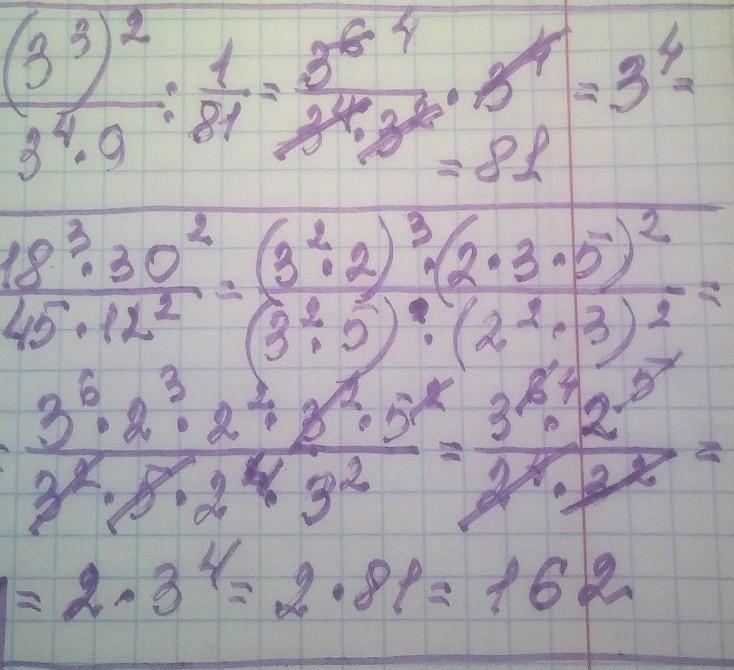 (3³)² / 3⁴·9 : 1/81 = 3⁶ ⁴ / 3⁴·3² · 3⁴ = 3⁴ =
= 81
18³·30² / 45·12² = (3²·2)³·(2·3·5)² / (3²·5)·(2²·3)² =
3⁶·2³·2²·3²·5² / 3²·5·2⁴·3² = 3⁶ ⁴·2⁵ / 2⁴·3² =
= 2·3⁴ = 2·81 = 162